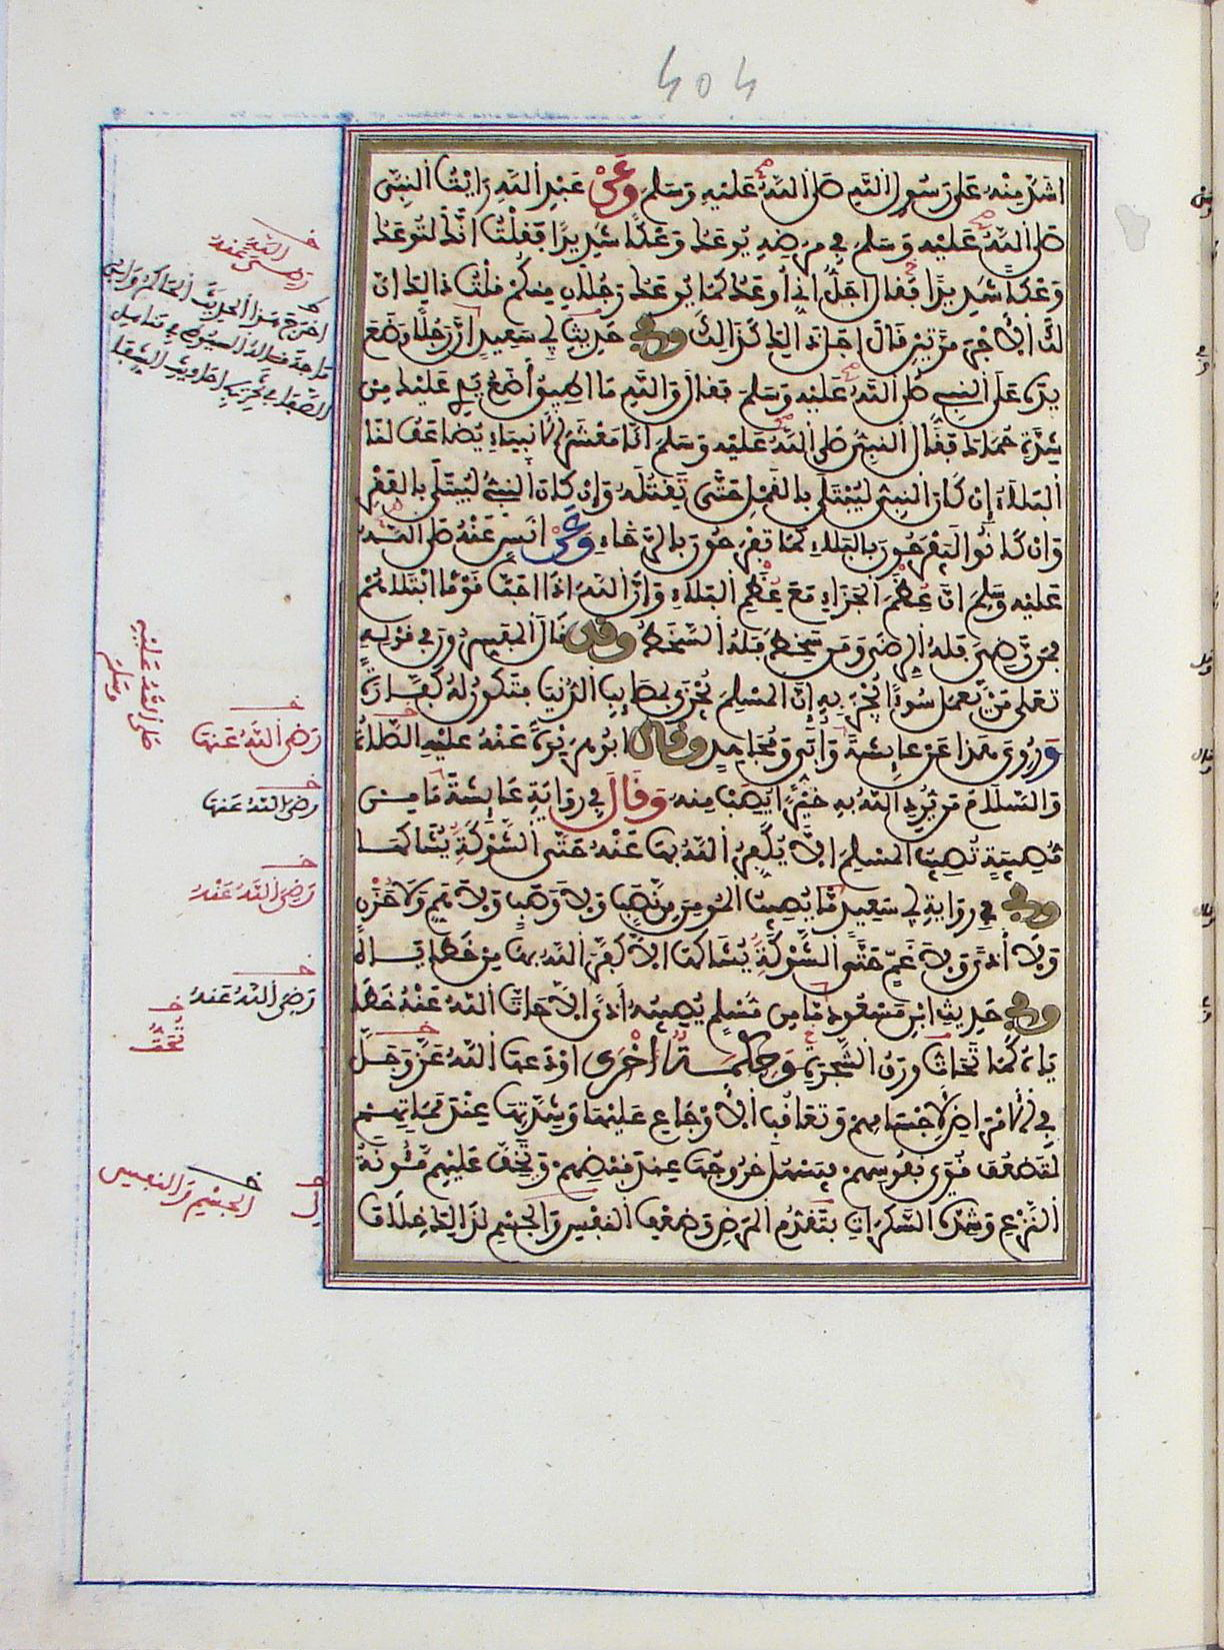 404
اشد منه على رسول الله صلى الله عليه وسلم وعن عبد الله رايت النبي
صلى الله عليه وسلم في مرضه يوعك وعكا شديدا فقلت انك لتوعك
وعكا شديدا فقال اجل اني اوعك كما يوعك رجلان منكم قلت ذالك ان
لك الاجر مرتين قال اجل ذالك كذالك وفي حديث ابي سعيد ان رجلا وضع
يده على النبي صلى الله عليه وسلم فقال والله ما اطيق أضع يدي عليك من
شدة حماك فقال النبي صلى الله عليه وسلم انا معشر الانبياء يضاعف لنا
البلاء إن كان النبي ليبتلى بالقمل حتى يقتله وإن كان النبي ليبتلى بالفقر
وان كانوا ليفرحون بالبلاء كما تفرحون بالرخاء وعن انس عنه صلى الله
عليه وسلم ان عظم الجزاء مع عظم البلاء وان الله اذا احب قوما ابتلاهم
فمن رضي فله الرضى ومن سخط فله السخط وقد قال المفسرون في قوله
تعلى من يعمل سوءا يجز به إن المسلم يجزى بمصايب الدنيا فتكون له كفارة
وروي هذا عن عايشة وابي ومجاهد وقال ابو هريرة عنه عليه الصلاة
والسلام من يرد الله به خيرا يصب منه وقال في رواية عايشة ما من
مصيبة تصيب المسلم الا يكفر الله بها عنه حتى الشوكة يشاكها
وفي رواية ابي سعيد ما يصيب المومن من نصب ولا وصب ولا هم ولا حزن
ولا أذى ولا غم حتى الشوكة يشاكها الا كفر الله بها من خطاياه
وفي حديث ابن مسعود ما من مسلم يصيبه أذى الا حات الله عنه خطا
ياه كما تحات ورق الشجرة وحكمة اخرى اودعها الله عز وجل
في الامراض لاجسامهم وتعاقب الاوجاع عليها وشدتها عند مماتهم
لتضعف قوى نفوسهم فيسهل خروجها عند قبضهم وتخف عليهم مئونة
النزع وشدة السكرات بتقدم المرض وضعف النفس والجسم لذالك خلاف
رضي الله عنه
اخرج هذا الحديث الحاكم وابن
ماجة قاله السيوطي في مناهل
الصفا في تخريج احاديث الشفا
صلى الله عليه
وسلم
رضي الله عنها
رضي الله عنها
رضي الله عنه
رضي الله عنه
تحت
الجسم والنفس